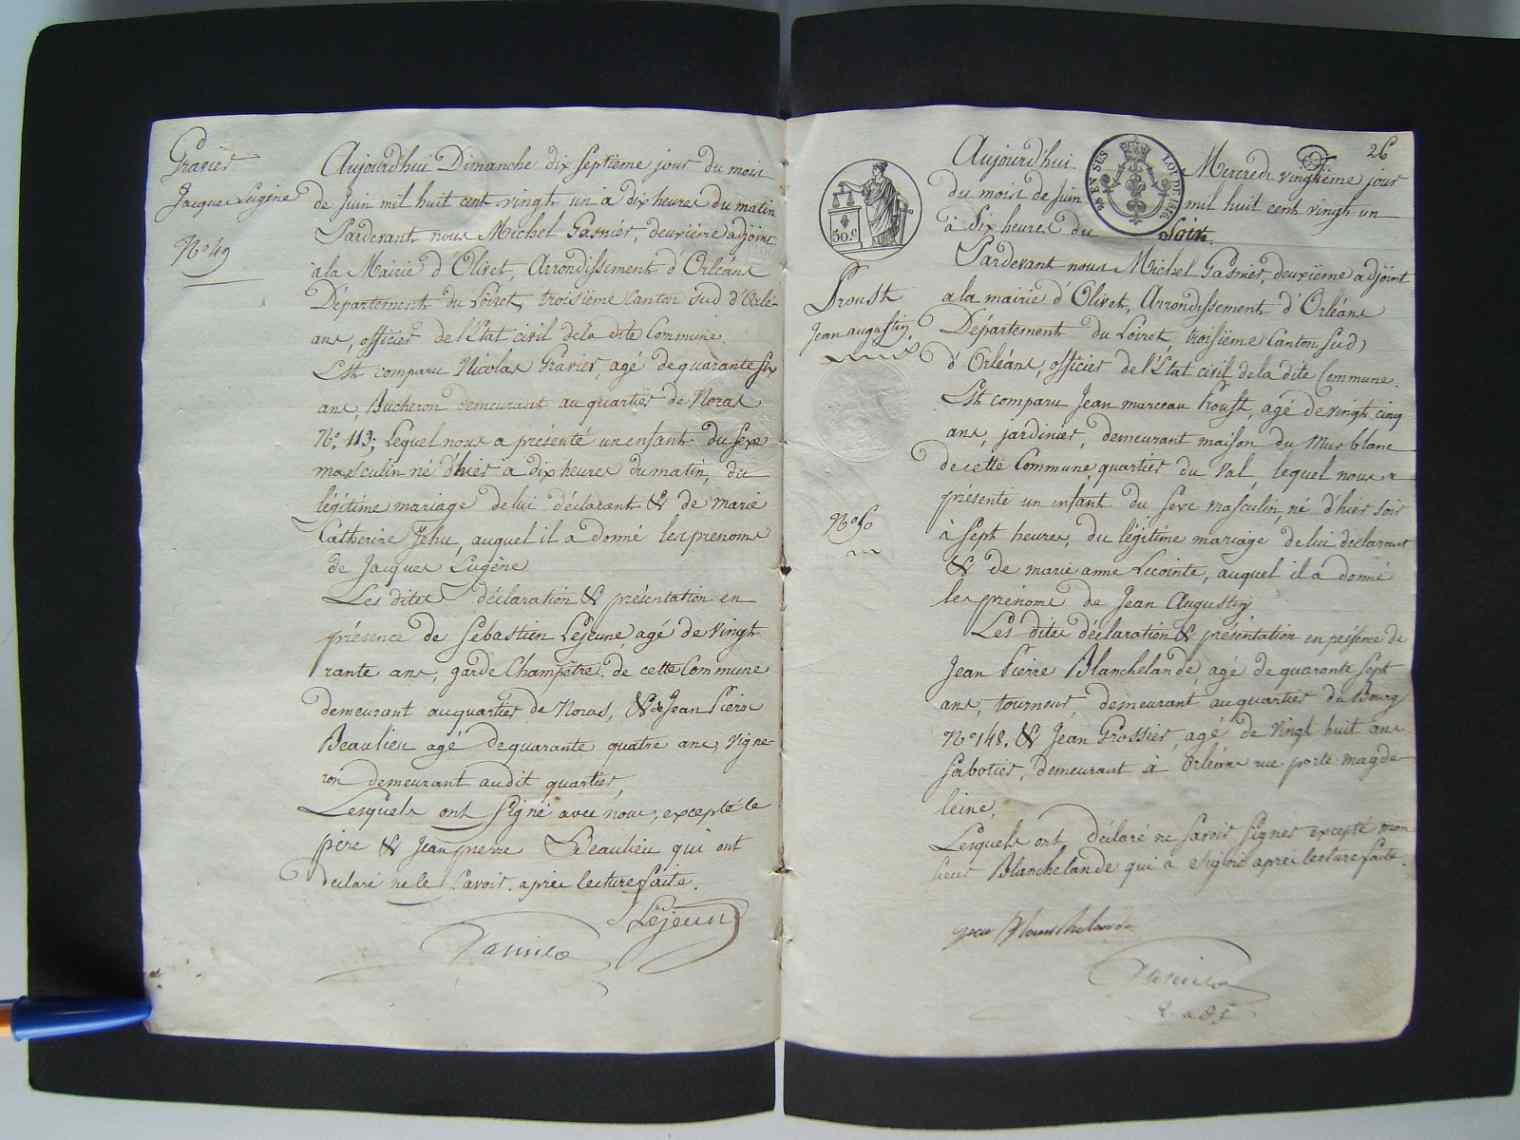 Gravier
Jacques Eugène
N.o 49
Aujourd'hui Dimanche dix septième jour du mois
de Juin mil huit cent vingt un à dix heures du matin
Pardevant nous Michel Gasnier, deuxième adjoint
à la Mairie d'Olivet, Arrondissement d'Orléans
Département du Loiret, troisième Canton Sud d'Orlé-
ans, officier de l'Etat civil dela dite Commune.
Est comparu Nicolas Gravier, agé de quarante six
ans, Bucheron demeurant au quartier de Noras
N.o 113; Lequel nous a présenté un enfant du sexe
masculin né d'hier à dix heures du matin, du
légitime mariage de lui déclarant & de marie
Catherine Jehu, auquel il a donné les prenoms
de Jacques Eugène
Les dites déclaration & présentation en
présence de Sébastien Lejeune, agé de vingt
rante ans, garde Champêtre de cette Commune
demeurant au quartier de Noras, & de Jean Pierre
Beaulieu agé de quarante quatre ans, Vigne-
ron demeurant au dit quartier
Lesquels ont signé avec nous, excepté le
père & Jean pierre Beaulieu qui ont
declaré ne le savoir. après lecture faite.
S Lejeun
26
Aujourd'hui Mercredi vingtième jour
du mois de Juin mil huit cent vingt un
à Six heures du Soir.
50.c
Pardevant nous Michel Gasnier, deuxième adjoint
a la mairie d'Olivet, Arrondissement d'Orléans
Proust
Jean augustin.
N.o 50
Département du Loiret, troisième Canton Sud
d'Orléans, officier de l'Etat civil de la dite Commune.
Est comparu Jean marceau Proust, agé de vingt cinq
ans, jardinier, demeurant maison du Mur blanc
de cette Commune quartier du Val, lequel nous a
présenté un enfant du sexe masculin, né d'hier soir
à sept heures, du légitime mariage de lui déclarant
& de marie anne Lecointe, auquel il a donné
les prénoms de Jean Augustin
Les dites déclaration & présentation en présence de
Jean Pierre Blanchelande, agé de quarante sept
ans, tourneur, demeurant au quartier du Bourg
N.o 148. & Jean Grossier, agé de Vingt huit ans
sabotier, demeurant à Orléans rue porte magde
leine.
Lesquels ont déclaré ne savoir signer excepté mon
sieur Blanchelande qui a signé après lecture faite.